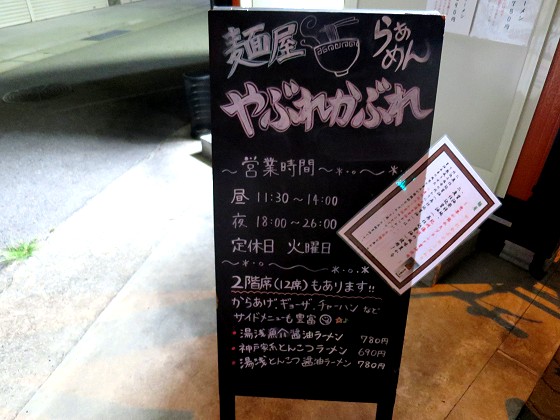 麺屋
らぁめん
やぶれかぶれ
～営業時間～
昼 11:30～14:00
夜 18:00～26:00
定休日 火曜日
2階席(12席)もあります!!
からあげ、ギョーザ、チャーハン など
サイドメニューも豊富
湯浅魚介醤油ラーメン 780円
神戸家系とんこつラーメン 690円
湯浅とんこつ醤油ラーメン 780円